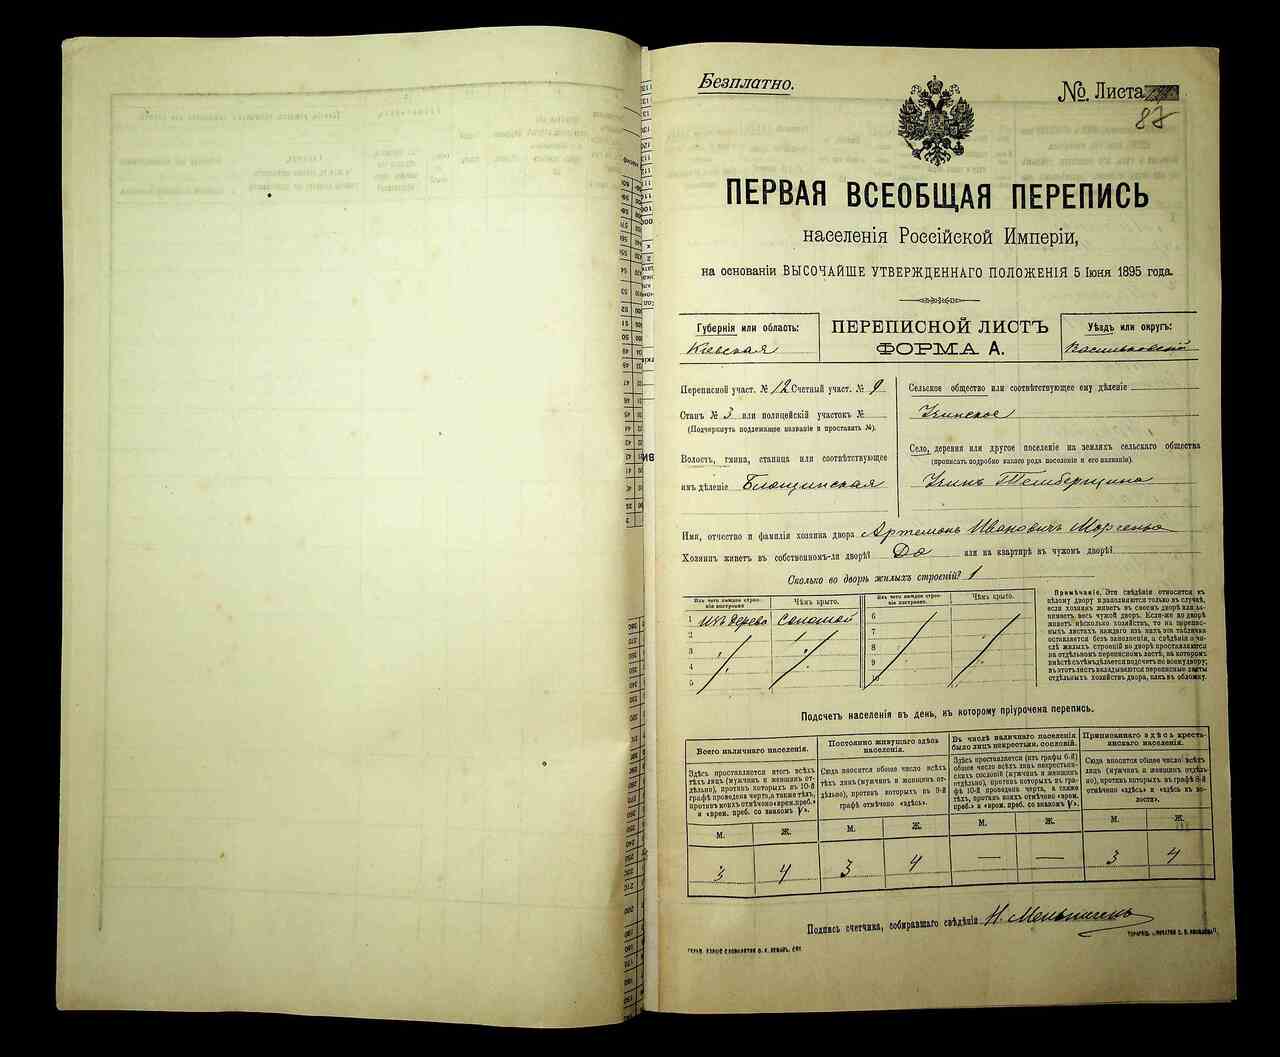 Безплатно.
№ Листа
87
ПЕРВАЯ ВСЕОБЩАЯ ПЕРЕПИСЬ
населенія Россійской Имперіи,
на основаніи ВЫСОЧАЙШЕ УТВЕРЖДЕННАГО ПОЛОЖЕНІЯ 5 Іюня 1895 года.
Губернія или область:
Кіевская
ПЕРЕПИСНОЙ ЛИСТЪ
ФОРМА А.
Уѣздъ или округъ:
Васильковскій
Переписной участ. № 12 Счетный участ. № 9
Станъ № 3 или полицейскій участокъ №
(Подчеркнуть подлежащее названіе и проставить №).
Волость, гмина, станица или соотвѣтствующее
имъ дѣленіе
Сельское общество или соотвѣтствующее ему дѣленіе
Узинское
Село, деревня или другое поселеніе на земляхъ сельскаго общества
(прописать подробно какого рода поселеніе и его названіе).
Узинъ Темберщина
Имя, отчество и фамилія хозяина двора Артемонъ Ивановичъ
Хозяинъ живетъ въ собственномъ-ли дворѣ? Да или на квартирѣ въ чужомъ дворѣ?
Сколько во дворѣ жилыхъ строеній? 1
Изъ чего каждое строеніе построено
Чѣмъ крыто.
Изъ чего каждое строеніе построено.
Чѣмъ крыто.
1 Изъ дерева Соломой
2
3
4
5
6
7
8
9
10
Примѣчаніе. Эти свѣдѣнія относятся къ
цѣлому двору и заполняются только въ случаѣ,
если хозяинъ живетъ въ своемъ дворѣ или занимаетъ
весь чужой дворъ. Если-же во дворѣ
живетъ нѣсколько хозяйствъ, то на переписныхъ
листахъ каждаго изъ нихъ эта табличка
оставляется безъ заполненія, а свѣдѣнія о числѣ
жилыхъ строеній во дворѣ проставляются
на отдѣльномъ переписномъ листѣ, на которомъ
вмѣстѣ съ тѣмъ дѣлается подсчетъ по всему двору;
въ этотъ листъ вкладываются переписные листы
отдѣльныхъ хозяйствъ двора, какъ въ обложку.
Подсчетъ населенія въ день, къ которому пріурочена перепись.
Всего наличнаго населенія.
Здѣсь проставляется итогъ всѣхъ
тѣхъ лицъ (мужчинъ и женщинъ отдѣльно),
противъ которыхъ въ 10-й
графѣ проведена черта, а также тѣхъ,
противъ коихъ отмѣчено «врем. преб.»
и «врем. преб. со знакомъ V».
Постоянно живущаго здѣсь
населенія.
Сюда вносится общее число всѣхъ
тѣхъ лицъ (мужчинъ и женщинъ отдѣльно),
противъ которыхъ въ 9-й
графѣ отмѣчено «здѣсь».
Въ числѣ наличнаго населенія
было лицъ некрестьян. сословій.
Здѣсь проставляется (изъ графы 6-й)
общее число всѣхъ лицъ некрестьянскихъ
сословій (мужчинъ и женщинъ
отдѣльно), противъ которыхъ въ графѣ
10-й проведена черта, а также
тѣхъ, противъ коихъ отмѣчено «врем.
преб.» и «врем. преб. со знакомъ V».
Приписаннаго здѣсь крестьянскаго
населенія.
Сюда вносится общее число всѣхъ
лицъ (мужчинъ и женщинъ отдѣльно),
противъ которыхъ въ графѣ 8-й
отмѣчено «здѣсь» и «здѣсь въ волости».
М. Ж. М. Ж. М. Ж. М. Ж.
3 4 3 4 — — 3 4
Подпись счетчика, собиравшаго свѣдѣнія